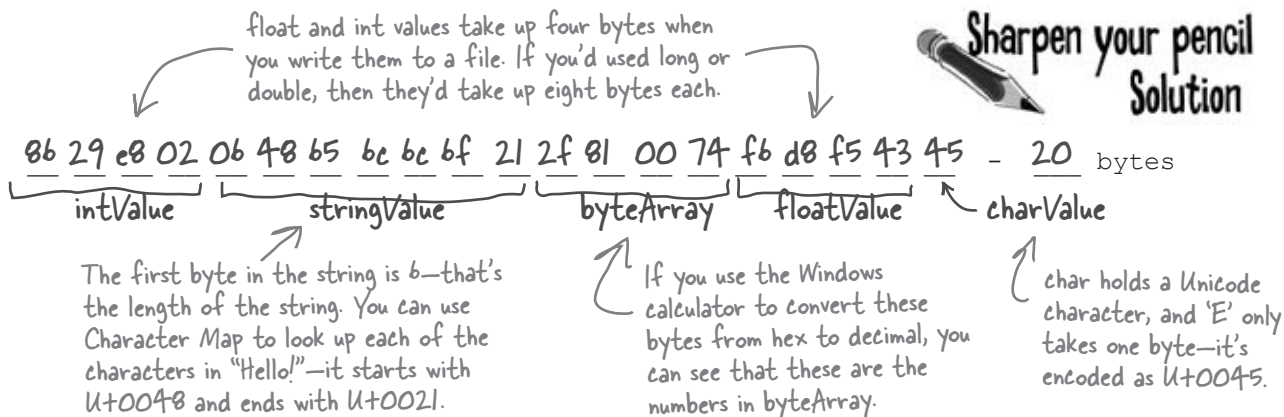 float and int values take up four bytes when
you write them to a file. If you'd used long or
double, then they'd take up eight bytes each.
Sharpen your pencil
Solution
86 29 e8 02 06 48 65 6c 6c 6f 21 2f 81 00 74 f6 d8 f5 43 45 - 20 bytes
intValue stringValue byteArray floatValue charValue
The first byte in the string is 6—that's
the length of the string. You can use
Character Map to look up each of the
characters in "Hello!"—it starts with
U+0048 and ends with U+0021.
If you use the Windows
calculator to convert these
bytes from hex to decimal, you
can see that these are the
numbers in byteArray.
char holds a Unicode
character, and 'E' only
takes one byte—it's
encoded as U+0045.